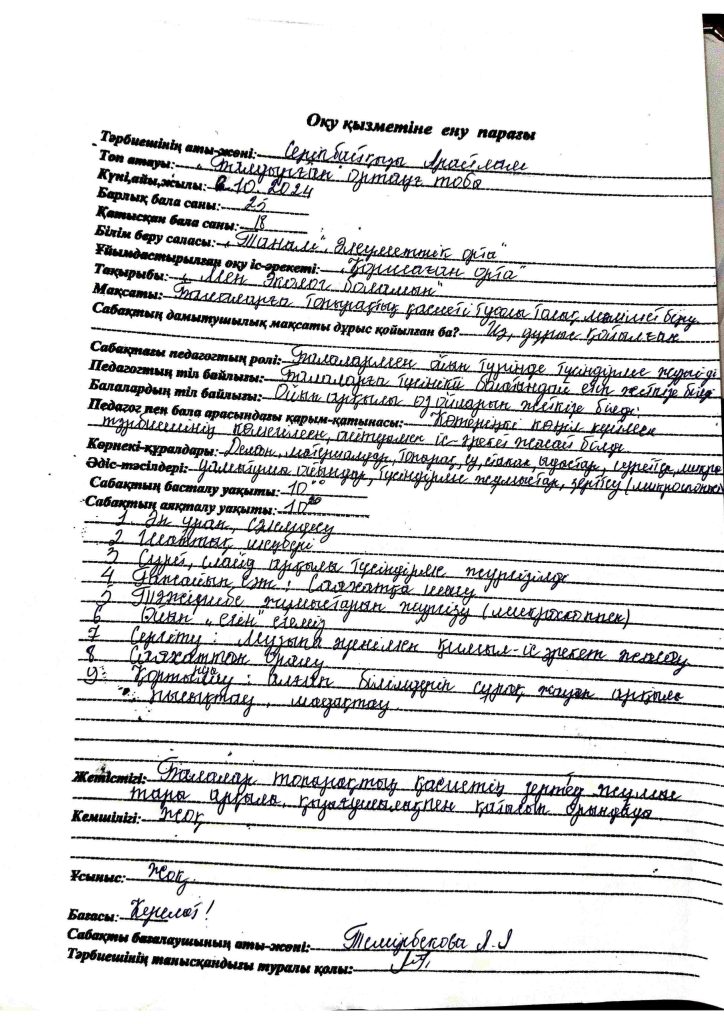 Оқу қызметіне ену парағы
Тәрбиешінің аты-жөні: Серікбайқызы
Топ атауы: „Балдырған" ортаңғы тобы
Күні,айы,жылы: 2.10.2024
Барлық бала саны: 25
Қатысқан бала саны: 18
Білім беру саласы: „Таным", Әлеуметтік орта"
Ұйымдастырылған оқу іс-әрекеті: „Қоршаған орта"
Тақырыбы: „Мен эколог боламын"
Мақсаты: Балаларға топырақтың қасиеті туралы толық мәлімет беру
Сабақтың дамытушылық мақсаты дұрыс қойылған ба? Иә, дұрыс қойылған
Сабақтағы педагогтың ролі: Балалармен ойын түрінде түсіндірме жүргізді
Педагогтың тіл байлығы: Балаларға түсінікті болатындай етіп жеткізе білді
Балалардың тіл байлығы: Ойын арқылы өз ойларын жеткізе білді.
Педагог пен бала арасындағы қарым-қатынасы: Көтеріңкі көңіл күймен
тәрбиешінің көмегімен, айтуымен іс-әрекет жасай білді
Көрнекі-құралдары: Демон. материалдар, топырақ, су, стакан ыдыстар, суреттер, микро
Әдіс-тәсілдері: дамытушы ойындар, түсіндірме жұмыстар, зерттеу (микроскоппен)
Сабақтың басталу уақыты: 10⁰⁰
Сабақтың аяқталу уақыты: 10²⁰
1. Ән ұран, сәлемдесу
2 Шаттық шеңбері
3 Сурет, слайд арқылы түсіндірме жүргізілді
4 Ғажайып сәт: Саяхатқа шығу
5 Тәжірибе жұмыстарын жүргізу (микроскоппен)
6 Ойын „егін" егеміз
7 Сергіту: Музыка әуенімен қимыл-іс әрекет жасау
8 Саяхаттан оралу
9 Қортынды: алған білімдерін сұрақ жауап арқылы
пысықтау, мадақтау
Жетістігі: Балалар топырақтың қасиетін зерттеу жұмыс
тары арқылы, қызығушылықпен қатысып орындауы
Кемшілігі: Жоқ
Ұсыныс: Жоқ.
Бағасы: Керемет!
Сабақты бағалаушының аты-жөні: Темірбекова А.А
Тәрбиешінің танысқандығы туралы қолы: